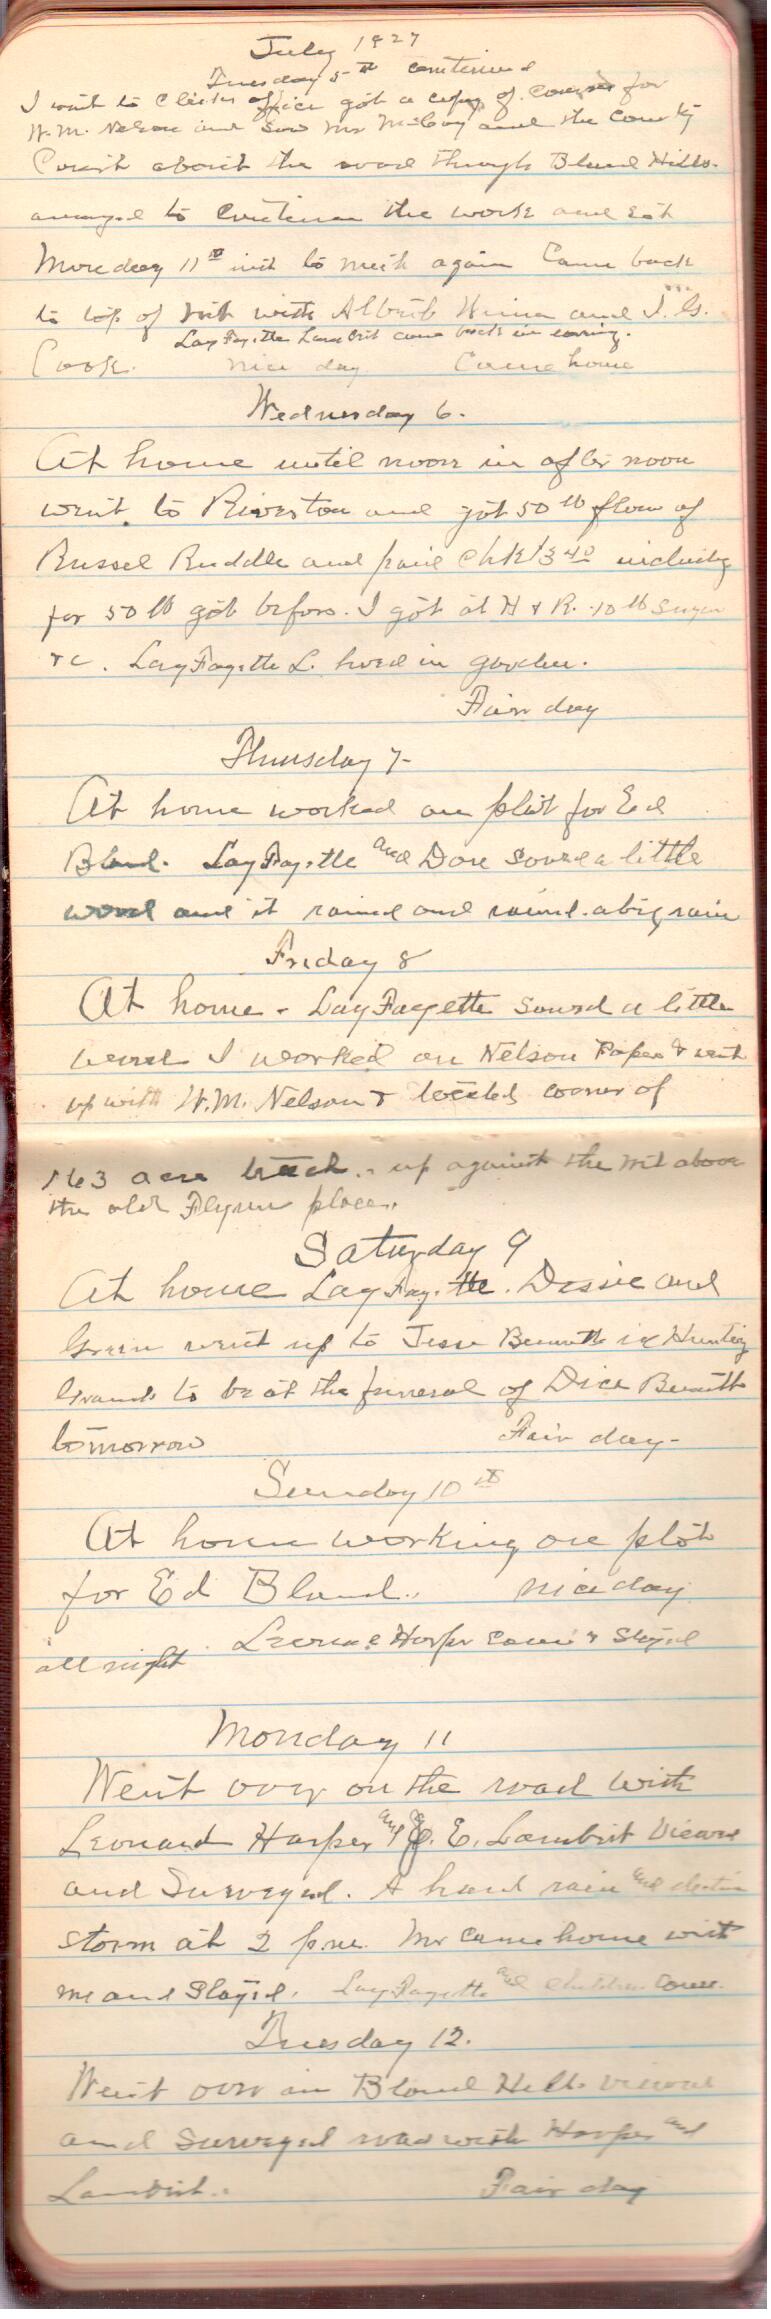 July 1927
Tuesday 5th continued
I went to Clerks office got a copy of courses for
W.M. Nelson and saw Mr McCoy and the County
Court about the road through Bland Hills.
arranged to continue the work and set
Monday 11th inst to meet again Came back
to top of mt with and I. G.
Lay Fayette Lambert came back in evening.
Cook. nice day Came home
Wednesday 6.
At home until noon in after noon
went to Riverton and got 50 lb flour of
Russel Ruddle and paid chk $3 40 including
for 50 lb got before. I got at H & R. 10 lb sugar
&c. LayFayette L. hoed in garden.
Fair day
Thursday 7-
At home worked on plat for Ed
Bland. LayFayette and Dore sawed a little
wood and it rained and rained. a big rain
Friday 8
At home - LayFayette sawed a little
wood I worked on Nelson Paper & went
up with W.M. Nelson & located corner of
163 acre track. up against the mt above
the old Flynn place.
Saturday 9
At home LayFayette. Dessie and
Green went up to Jess Bennetts in Hunting
Grounds to be at the funeral of Dice Bennett
tomorrow Fair day-
Sunday 10th
At home working on plot
for Ed Bland. nice day
Leonard Harper came & stayed
all night
Monday 11
Went over on the road with
Leonard Harper and E. Lambert viewed
and Surveyed. A hard rain and electric
storm at 2 p.m. came home with
me and stayed. LayFayette and children come.
Tuesday 12.
Went over in Bland Hills viewed
and surveyed road with Harper and
Lambert. Fair day